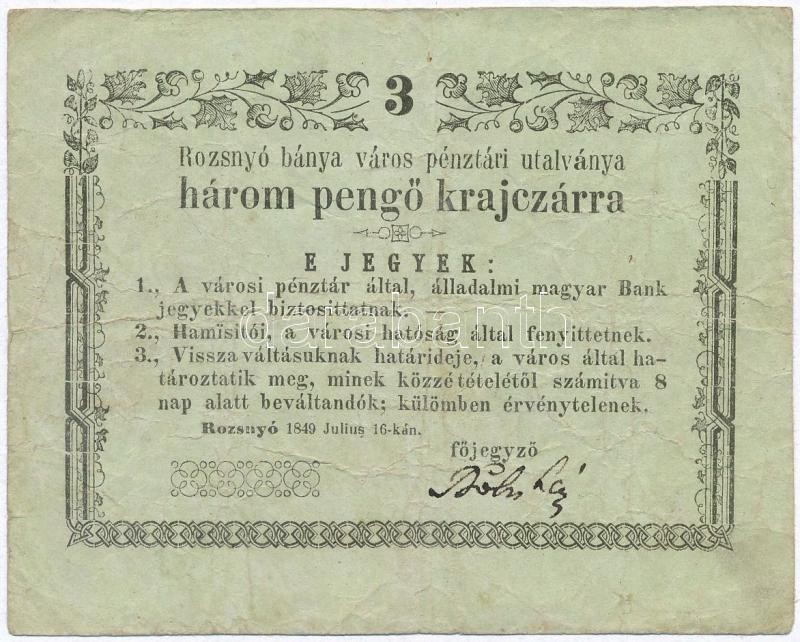 3
Rozsnyó bánya város pénztári utalványa
három pengő krajczárra
E JEGYEK:
1., A városi pénztár által, álladalmi magyar Bank
jegyekkel biztosittatnak. —
2., Hamïsitói, a városi hatóság által fenyittetnek.
3., Vissza váltásuknak határideje, a város által ha-
tároztatik meg, minek közzé tételétől számitva 8
nap alatt beváltandók; külömben érvénytelenek.
Rozsnyó 1849 Julius 16-kán.
főjegyző
darabanth